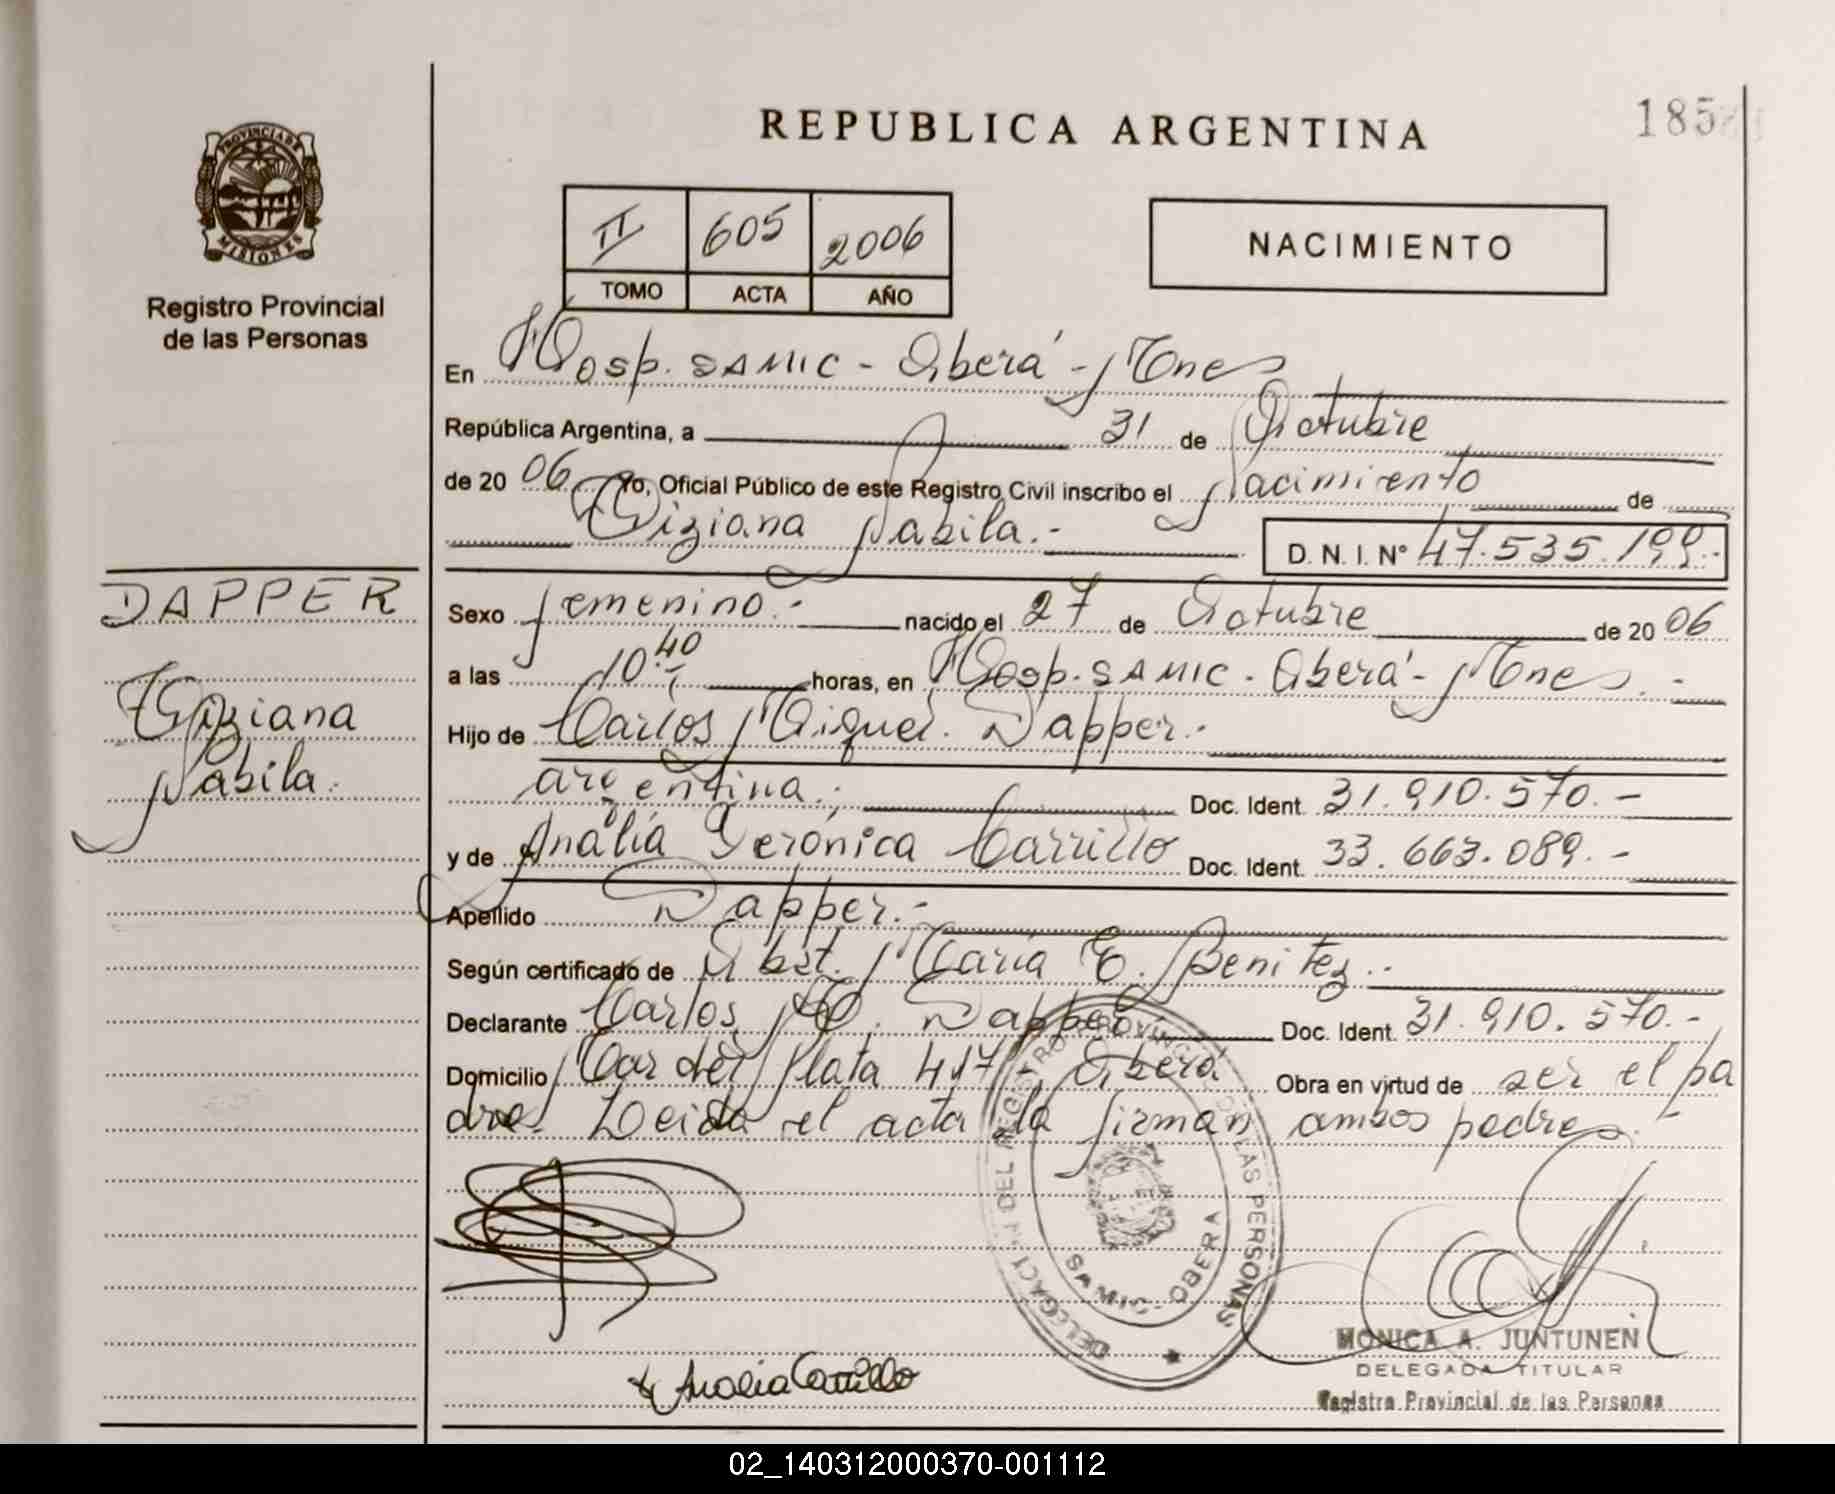 REPUBLICA ARGENTINA
185
PROVINCIA DE
MISIONES
Registro Provincial
de las Personas
II 605 2006
TOMO ACTA AÑO
NACIMIENTO
En Hosp. SAMIC - Oberá - Mnes
República Argentina, a 31 de Octubre
de 20 06 Yo, Oficial Público de este Registro Civil inscribo el Nacimiento de
Tiziana Nabila.-
D. N. I. N° 47.535.199.-
DAPPER
Tiziana
Nabila.
Sexo femenino.- nacido el 27 de Octubre de 20 06
a las 10:40 horas, en Hosp. SAMIC - Oberá - Mnes.-
Hijo de Carlos Miguel Dapper.-
argentina.; Doc. Ident. 31.910.570.-
y de Analía Verónica Carrillo Doc. Ident. 33.663.089.-
Apellido Dapper.-
Según certificado de Obst. María E. Benitez.-
Declarante Carlos M. Dapper Doc. Ident. 31.910.570.-
Domicilio Mar del Plata 417, Oberá Obra en virtud de ser el pa
dre. Leida el acta la firman ambos padres.-
DELEGACION DEL REGISTRO PROVINCIAL DE LAS PERSONAS
SAMIC - OBERA
Analia Carrillo
MONICA A. JUNTUNEN
DELEGADA TITULAR
Registro Provincial de las Personas
02_140312000370-001112